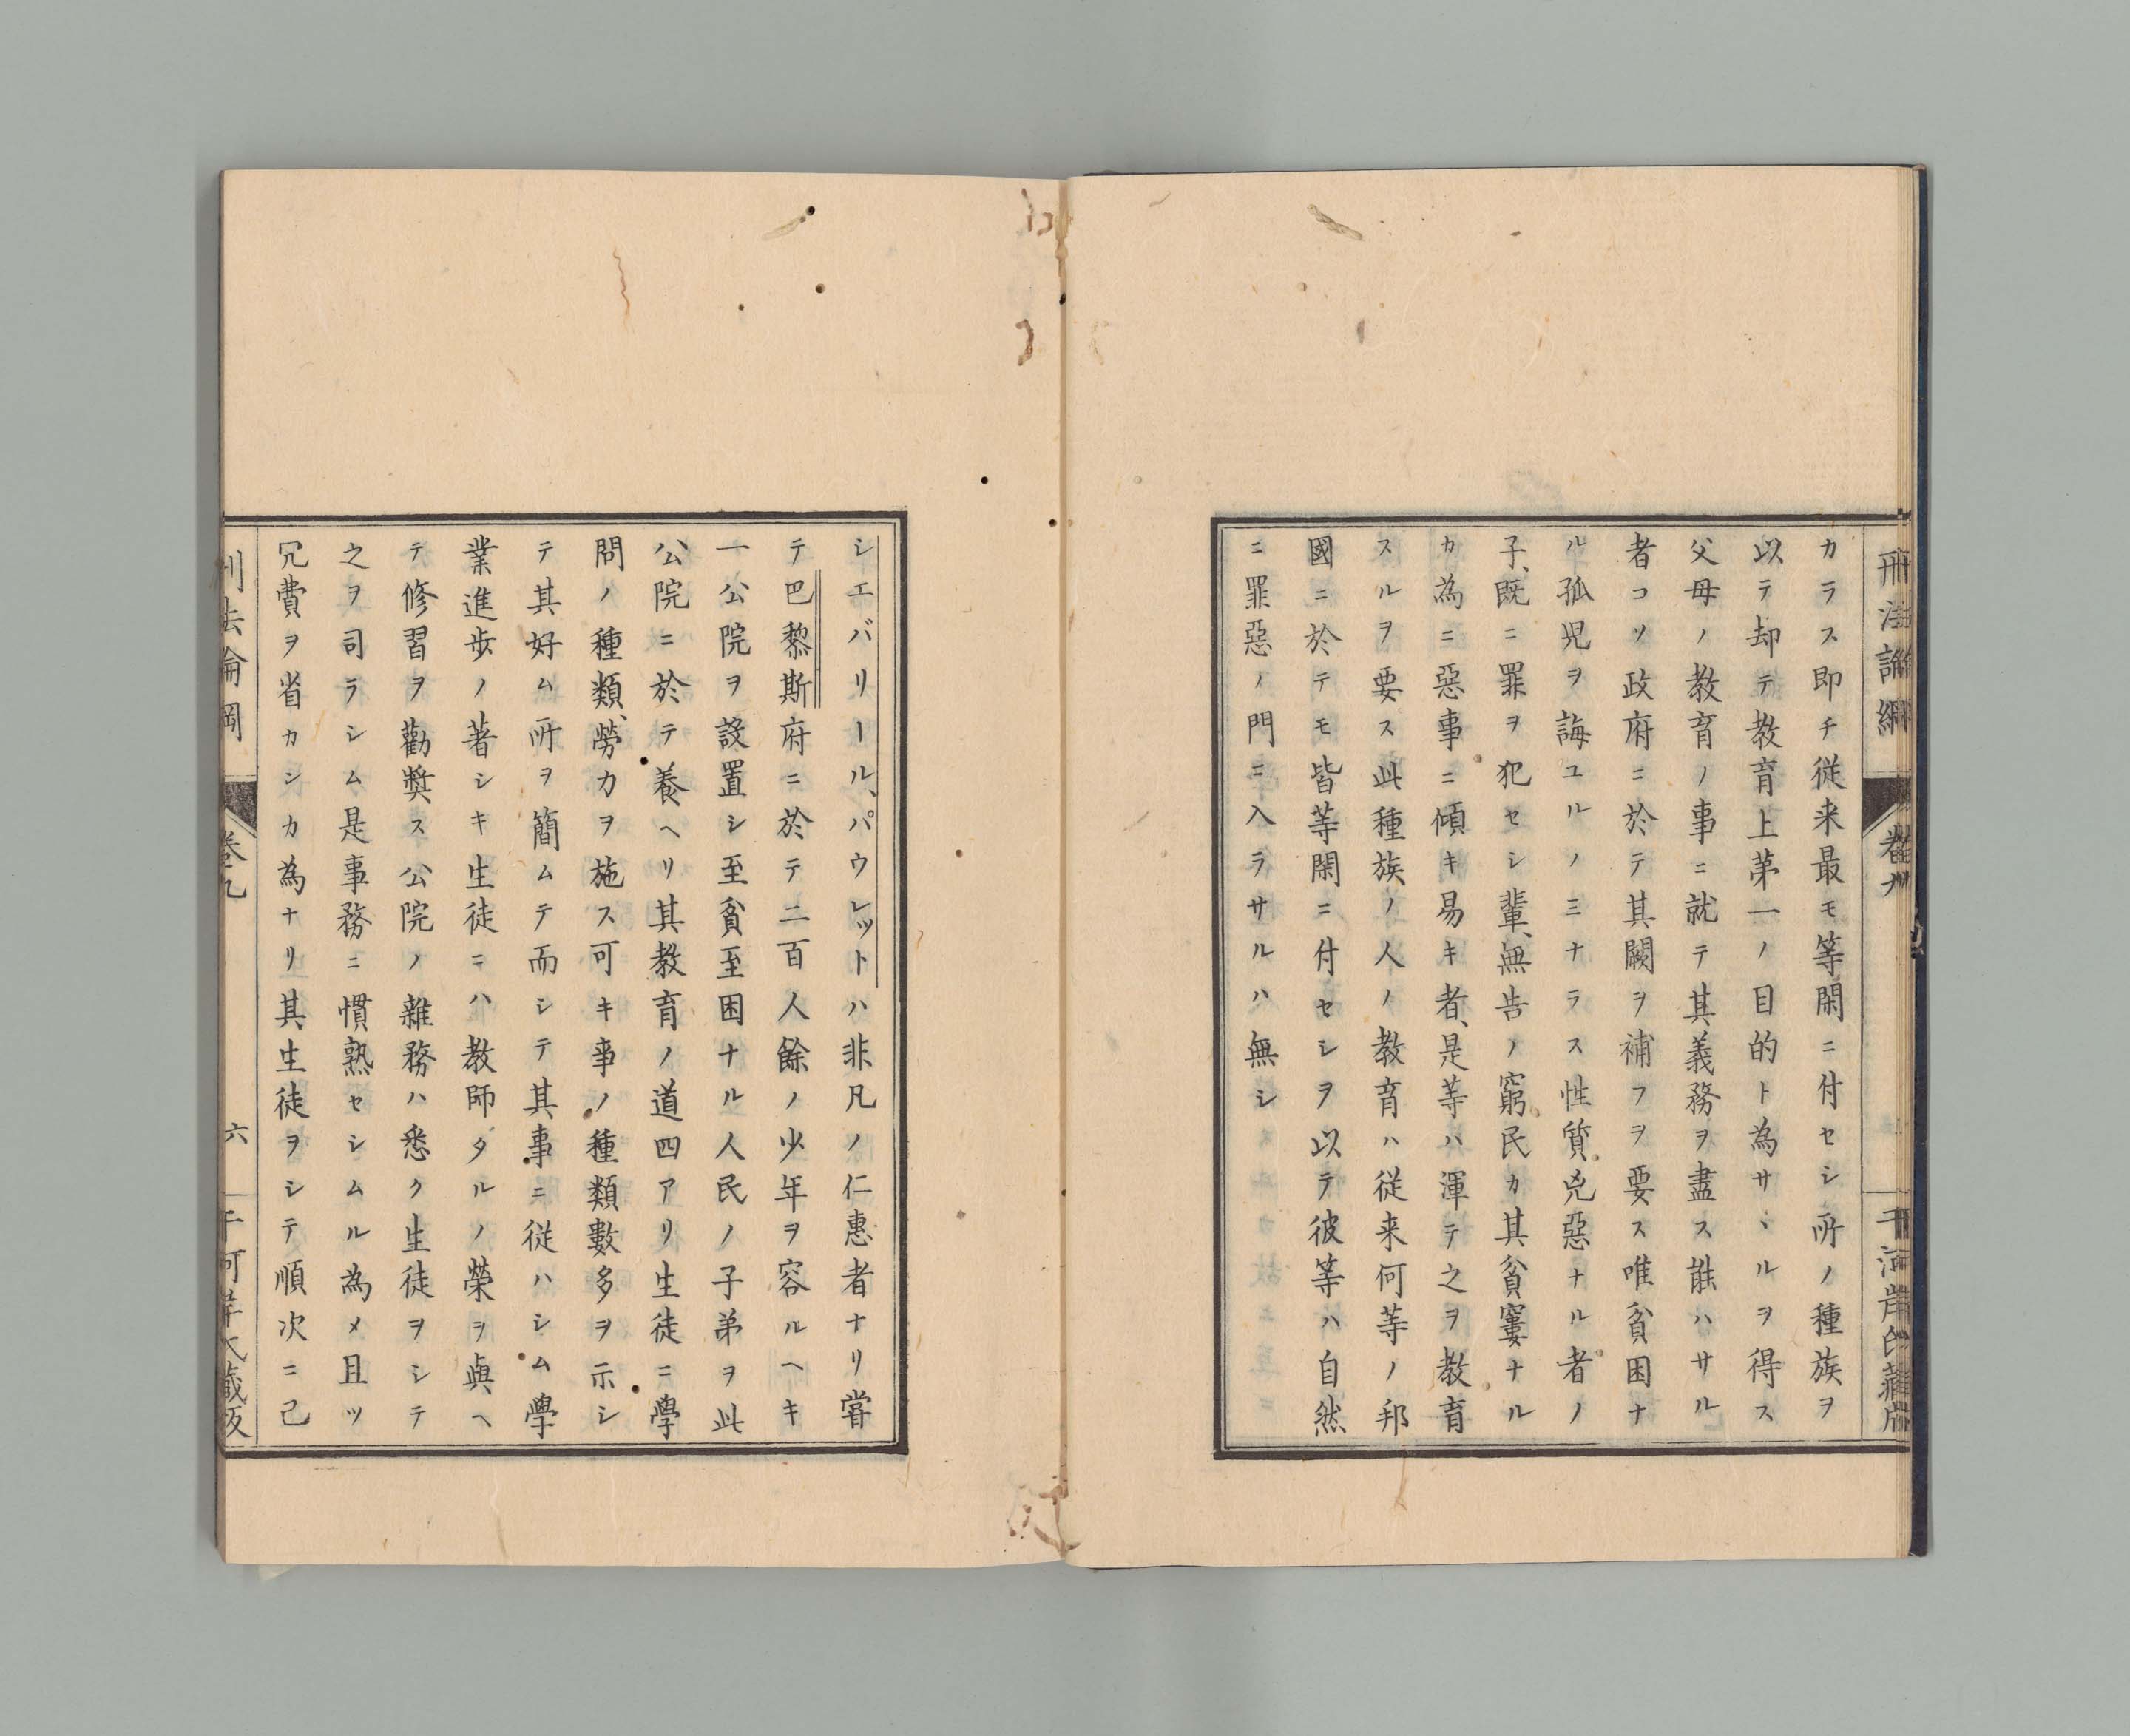 刑法論綱
卷九
カラス即チ従来最モ等閑ニ付セシ所ノ種族ヲ
以テ却テ教育上苐一ノ目的ト為サヽルヲ得ス
父母ノ教育ノ事ニ就テ其義務ヲ盡ス能ハサル
者コソ政府ニ於テ其闕ヲ補フヲ要ス唯貧困ナ
ル孤児ヲ誨ユルノミナラス性質兇惡ナル者ノ
子、既ニ罪ヲ犯セシ輩、無告ノ窮民カ其貧窶ナル
カ為ニ惡事ニ傾キ易キ者、是等ハ渾テ之ヲ教育
スルヲ要ス此種族ノ人ノ教育ハ従来何等ノ邦
國ニ於テモ皆等閑ニ付セシヲ以テ彼等ハ自然
ニ罪惡ノ門ニ入ラサルハ無シ
シエバリール、パウレットハ非凡ノ仁惠者ナリ嘗
テ巴黎斯府ニ於テ二百人餘ノ少年ヲ容ルヘキ
一公院ヲ設置シ至貧至困ナル人民ノ子弟ヲ此
公院ニ於テ養ヘリ其教育ノ道四アリ生徒ニ學
問ノ種類、勞力ヲ施ス可キ事ノ種類數多ヲ示シ
テ其好ム所ヲ簡ムテ而シテ其事ニ従ハシム學
業進歩ノ著シキ生徒ニハ教師タルノ榮ヲ與ヘ
テ修習ヲ勸奬ス公院ノ雜務ハ悉ク生徒ヲシテ
之ヲ司ラシム是事務ニ慣熟セシムル為メ且ツ
冗費ヲ省カシカ為ナリ其生徒ヲシテ順次ニ己
刑法論綱
卷九
六
干河岸氏藏版